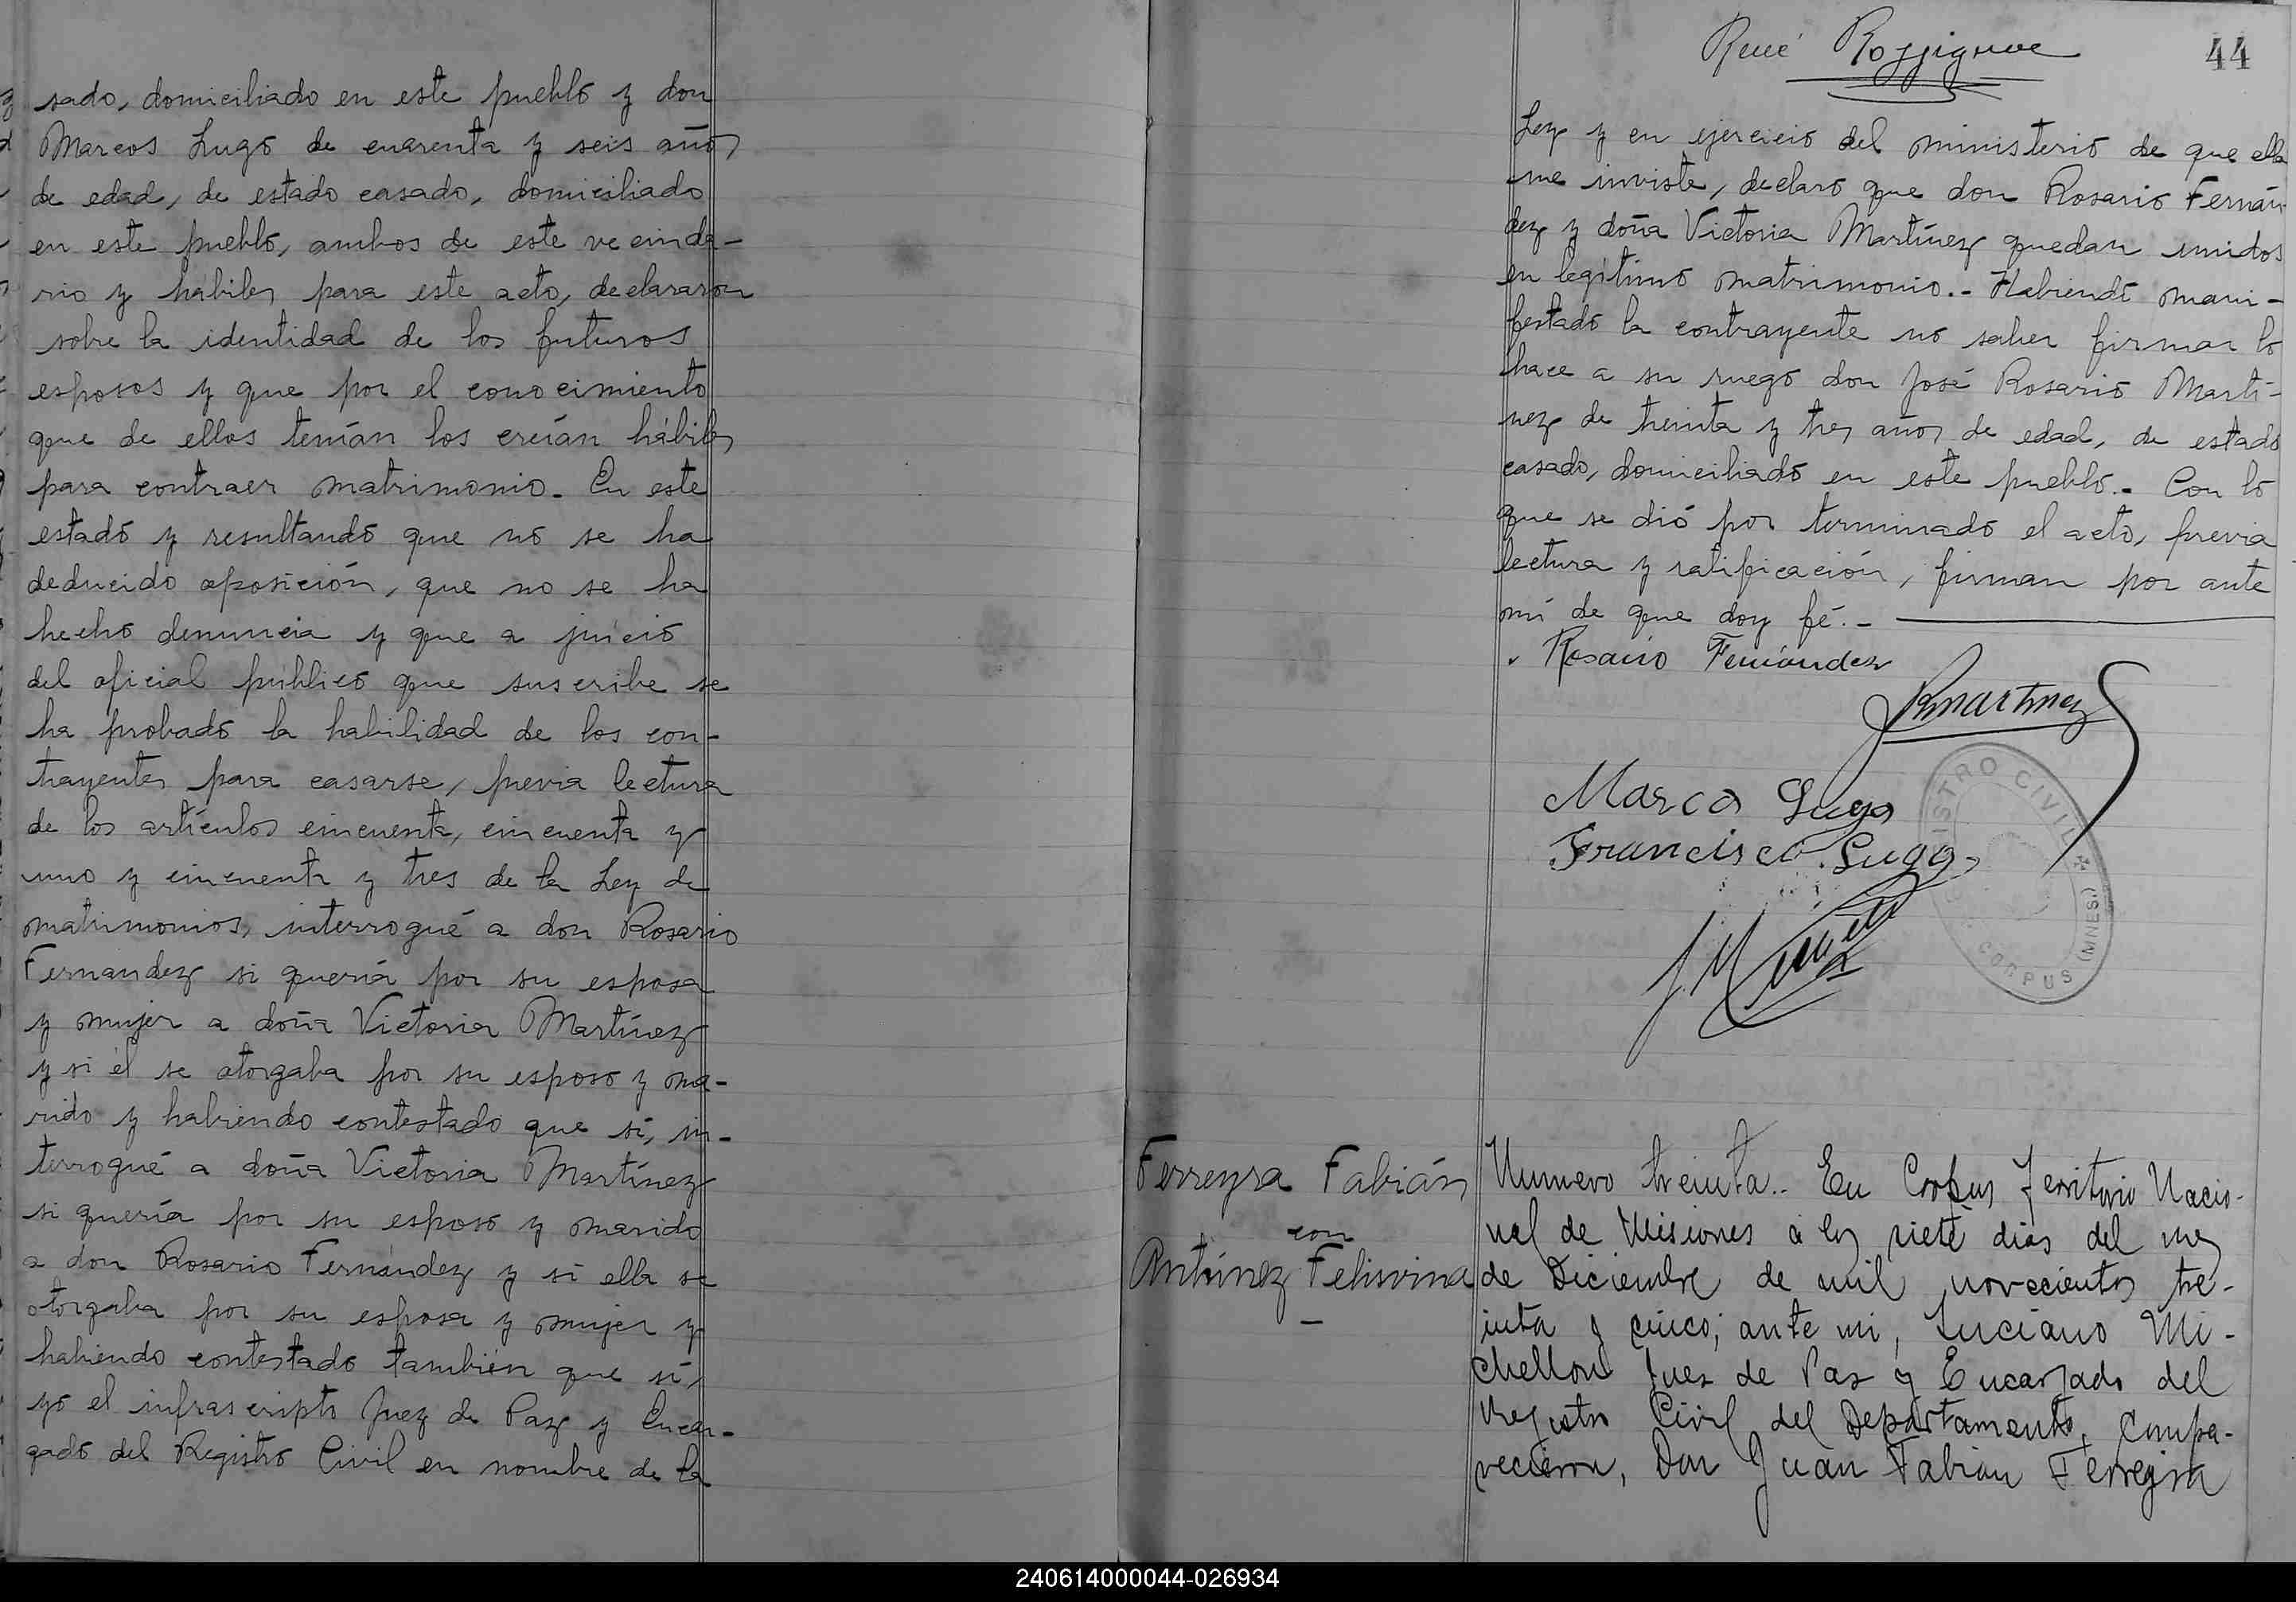 sado, domiciliado en este pueblo y don
Marcos Lugo de cuarenta y seis años
de edad, de estado casado, domiciliado
en este pueblo, ambos de este vecinda-
rio y hábiles para este acto, declararon
sobre la identidad de los futuros
esposos y que por el conocimiento
que de ellos tenían los creían hábiles
para contraer matrimonio. En este
estado y resultando que no se ha
deducido oposición, que no se ha
hecho denuncia y que a juicio
del oficial público que suscribe se
ha probado la habilidad de los con-
trayentes para casarse, previa lectura
de los artículos cincuenta, cincuenta y
uno y cincuenta y tres de la Ley de
matrimonios, interrogué a don Rosario
Fernandez si quería por su esposa
y mujer a doña Victoria Martínez
y si él se otorgaba por su esposo y ma-
rido y habiendo contestado que sí, in-
terrogué a doña Victoria Martínez
si quería por su esposo y marido
a don Rosario Fernández y si ella se
otorgaba por su esposa y mujer y
habiendo contestado también que sí,
yo el infrascripto Juez de Paz y Encar-
gado del Registro Civil en nombre de la
René
44
Ley y en ejercicio del ministerio de que ella
me inviste, declaro que don Rosario Fernán-
dez y doña Victoria Martínez quedan unidos
en legítimo matrimonio.- Habiendo mani-
festado la contrayente no saber firmar lo
hace a su ruego don José Rosario Martí-
nez de treinta y tres años de edad, de estado
casado, domiciliado en este pueblo.- Con lo
que se dió por terminado el acto, previa
lectura y ratificación, firman por ante
mí de que doy fé.-
Rosario Fernández
JRMartinez
Marcos Lugo
Francisco Lugo
REGISTRO CIVIL
CORPUS (MNES)
Ferreyra Fabián
con
Antúnez Felisvina
Numero treinta.. En Corpus Territorio Nacio-
nal de Misiones á los siete dias del mes
de Diciembre de mil novecientos tre-
inta y cinco; ante mi, Luciano Mi-
chellon Juez de Paz y Encargado del
Registro Civil del Departamento, Compa-
recieron, Don Juan Fabian Ferreyra
240614000044-026934